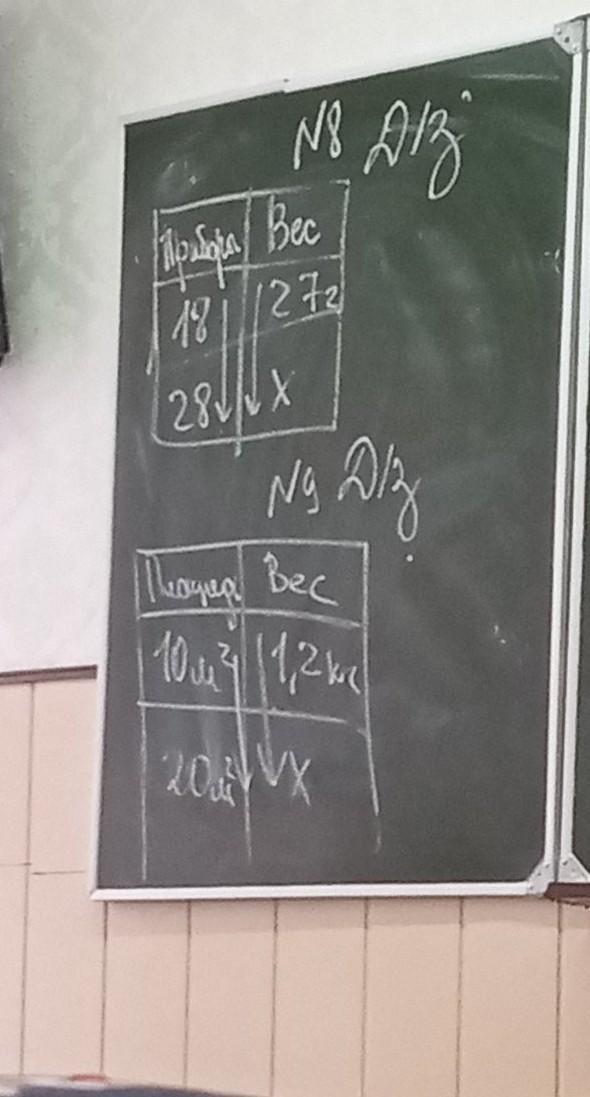 N8 Д/з
Приборы Вес
18 27г
28 X
N9 Д/з
Площадь Вес
10м² 1,2кг
20м² X